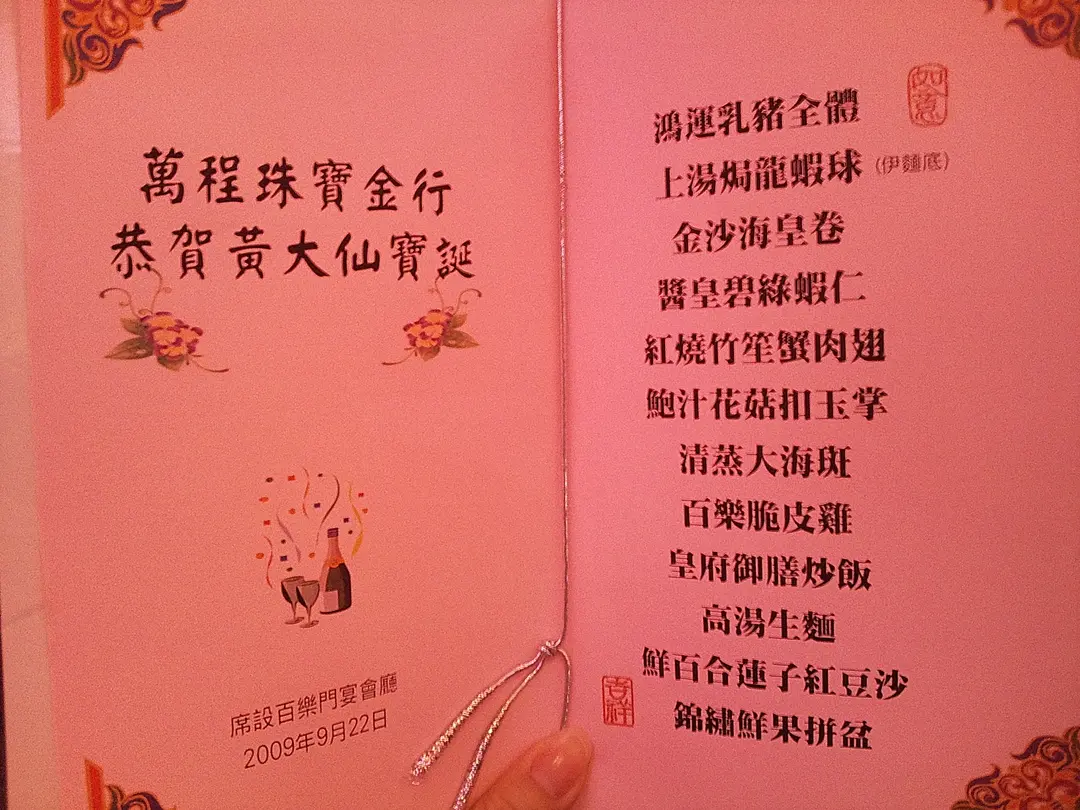 萬程珠寶金行
恭賀黃大仙寶誕
席設百樂門宴會廳
2009年9月22日
如意
鴻運乳豬全體
上湯焗龍蝦球(伊麵底)
金沙海皇卷
醬皇碧綠蝦仁
紅燒竹笙蟹肉翅
鮑汁花菇扣玉掌
清蒸大海斑
百樂脆皮雞
皇府御膳炒飯
高湯生麵
鮮百合蓮子紅豆沙
錦繡鮮果拼盆
吉祥